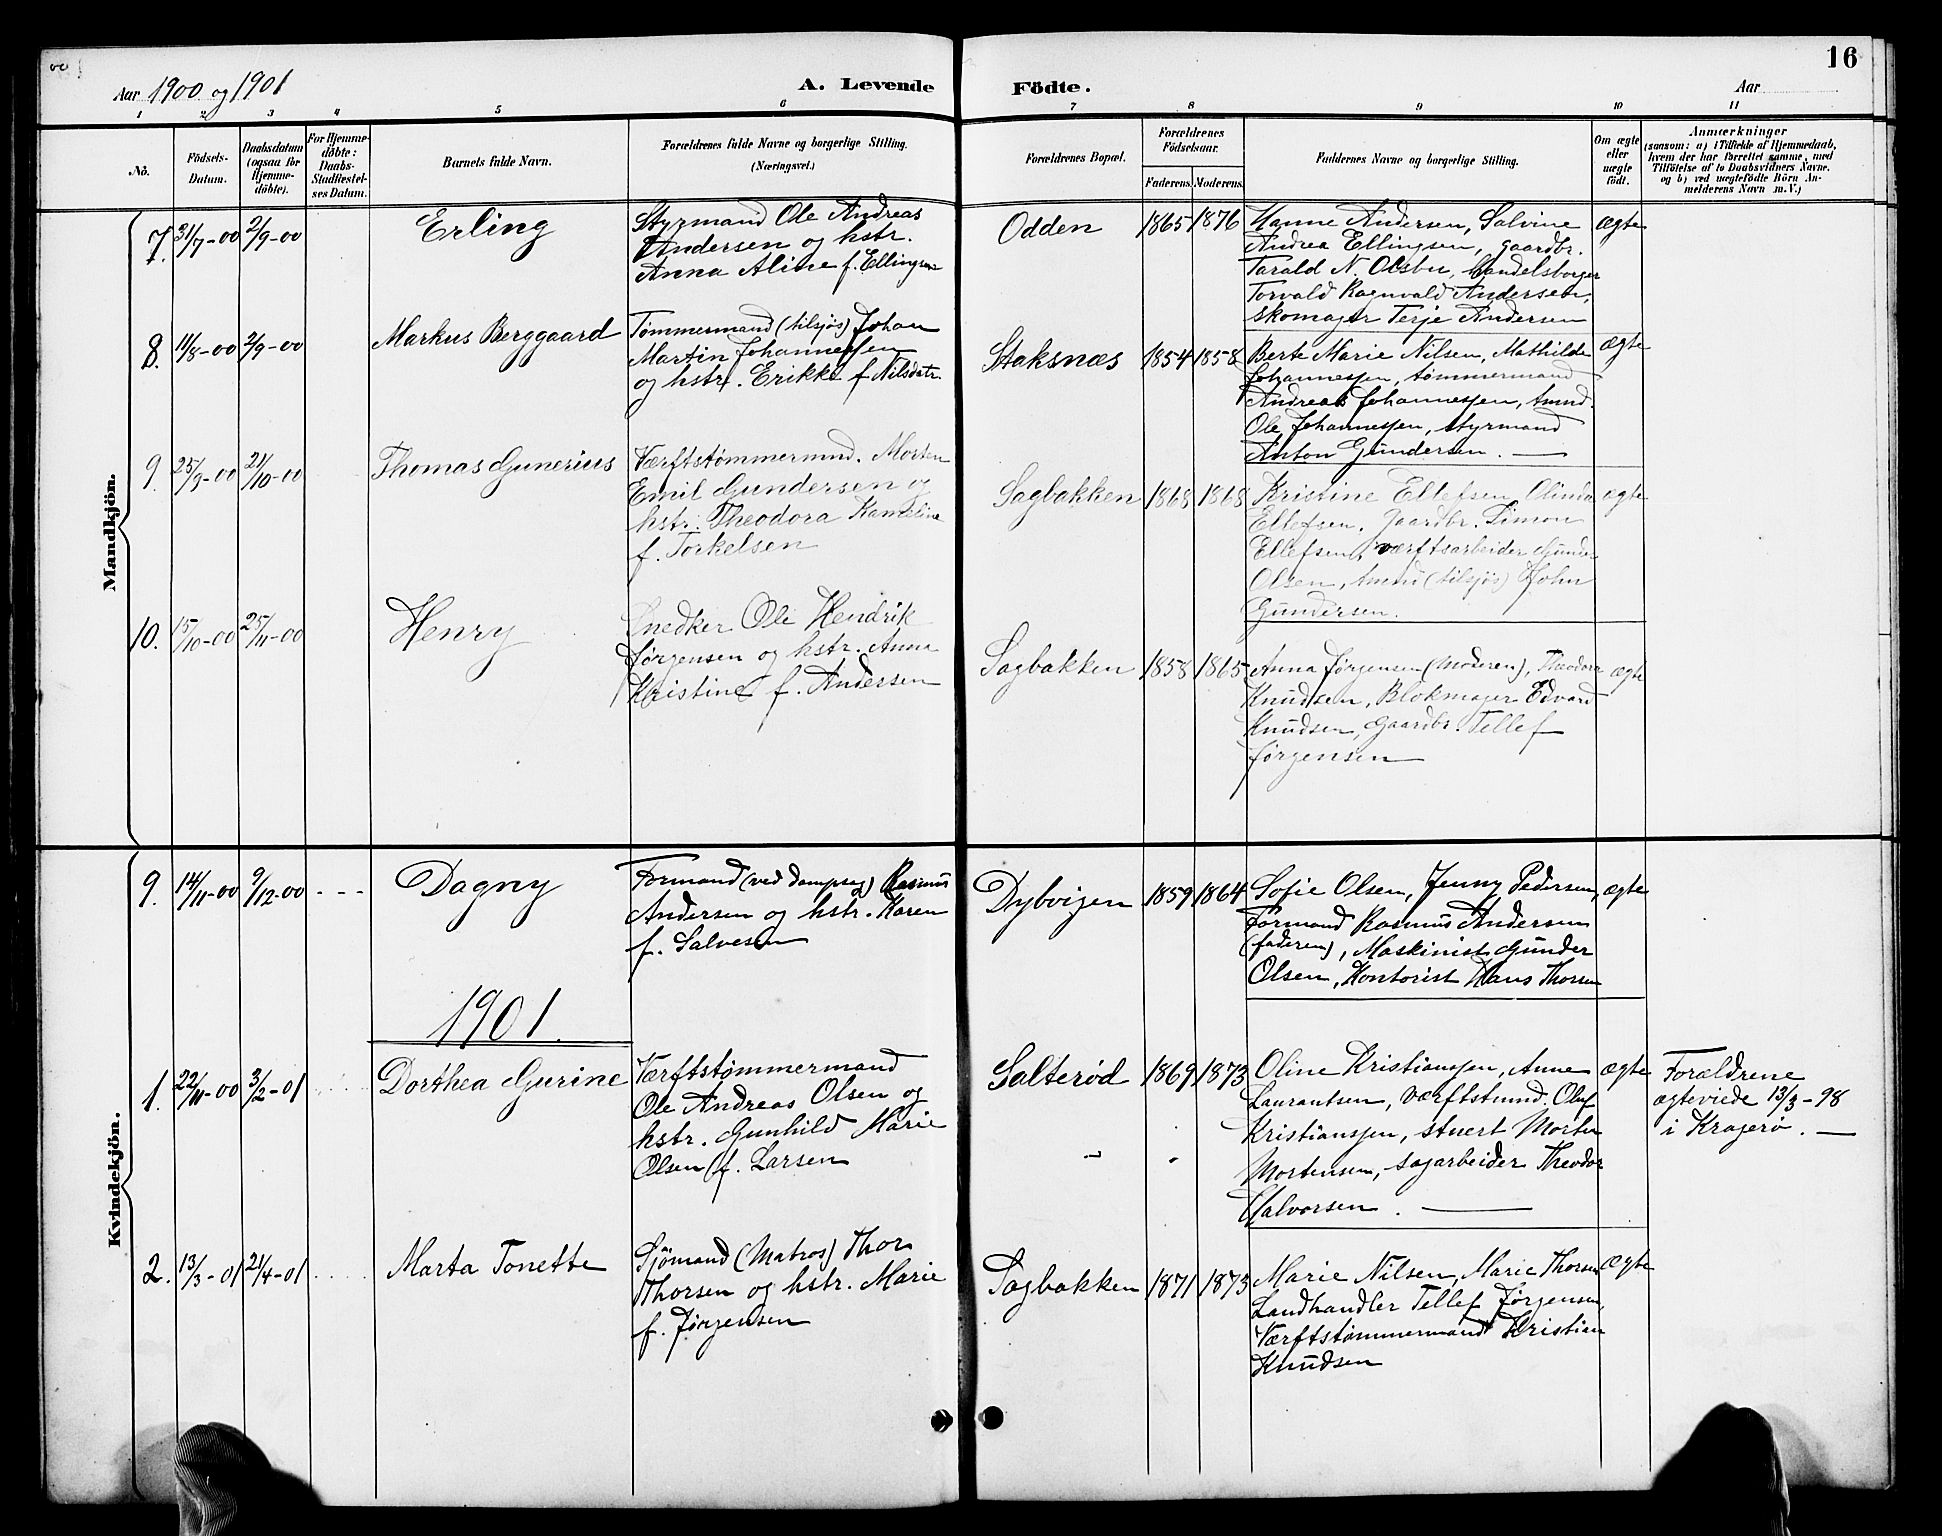 16
Aar 1900 og 1901
A. Levende Födte.
Aar
1 2 3 4 5 6 7 8 9 10 11
No.
Födsels-Datum.
Daabsdatum (ogsaa for Hjemme-döbte).
For Hjemme-döbte: Daabs-Stadfæstel-ses Datum.
Barnets fulde Navn.
Forældrenes fulde Navne og borgerlige Stilling.
(Næringsvei.)
Forældrenes Bopæl.
Forældrenes Födselsaar.
Faderens. Moderens.
Faddernes Navne og borgerlige Stilling.
Om ægte eller uægte födt.
Anmærkninger
(saasom: a) i Tilfælde af Hjemmedaab,
hvem der har forrettet samme, med
Tilföielse af to Daabsvidners Navne,
og b) ved uægtefödte Börn An-
melderens Navn m. V.)
Mandkjön.
7. 31/7-00 2/9-00
Erling
Styrmand Ole Andreas
Andersen og hstr.
Anna Aline f. Ellingsen
Odden 1865 1876
Hanne Andersen, Salvine
Andrea Ellingsen, gaardbr.
Tarald N. Olsbu, handelsborger
Torvald Ragnvald Andersen,
skomager Terje Andersen
ægte
8. 11/8-00 2/9-00
Markus Berggaard
Tømmermand (tilsjøs) Johan
Martin Johannessen
og hstr. Erikke f. Nilsdatr.
Staksnæs 1854 1858
Berte Marie Nilsen, Mathilde
Johannessen, tømmermand
Andreas Johannessen, tmmd.
Ole Johannessen, styrmand
Anton Gundersen.
ægte
9. 25/9-00 21/10-00
Thomas Gunerius
Værftstømmermnd. Morten
Emil Gundersen og
hstr. Theodora
f. Torkelsen
Sagbakken 1868 1868
Kristine Ellefsen, Olinda
Ellefsen, gaardbr. Simon
Ellefsen, værftsarbeider Gunder
Olsen, tmmd (tilsjøs) John
Gundersen.
ægte
10. 15/10-00 25/11-00
Henry
Snedker Ole Hendrik
Jørgensen og hstr. Anna
Kristine f. Andersen
Sagbakken 1858 1865
Anna Jørgensen (Moderen), Theodora
Knudsen, Blokmager Edvard
Knudsen, gaardbr. Tellef
Jørgensen
ægte
Kvindekjön.
9. 14/11-00 9/12-00 - - -
Dagny
Formand (ved dampsag) Rasmus
Andersen og hstr. Karen
f. Salvesen
Dybvigen 1859 1864
Sofie Olsen, Jenny Pedersen,
Formand Rasmus Andersen
(faderen), Maskinist Gunder
Olsen, Kontorist Hans Thorsen
ægte
1901.
1. 22/11-00 3/2-01
Dorthea Gurine
Værftstømmermand
Ole Andreas Olsen og
hstr. Gunhild Marie
Olsen f. Larsen
Salterød 1869 1873
Oline Kristianssen, Anne
Laurantsen, værftstmmd. Oluf
Kristianssen, stuert Morten
Mortensen, sagarbeider Theodor
Halvorsen.
ægte
Forældrene
ægteviede 13/3-98
i Kragerø.
2. 13/3-01 21/4-01
Marta Tonette
Sjömand (Matros) Thor
Thorsen og hstr. Marie
f. Jørgensen
Sagbakken 1871 1873
Marie Nilsen, Marie Thorsen,
Landhandler Tellef Jørgensen,
Værftstømmermand Kristian
Knudsen
ægte